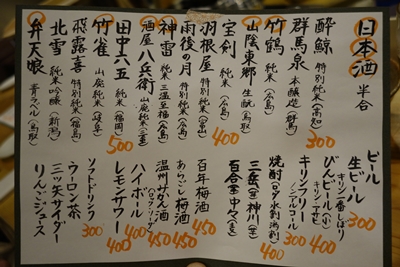 日本酒 半合
酔鯨 特別純米(高知) 300
群馬泉 本醸造(群馬)
竹鶴 純米(広島)
山陰東郷 生酛(鳥取)
宝剣 純米(広島) 400
羽根屋 特別純米(富山)
雨後の月 特別純米(広島)
神雷 純米三温至福(広島)
酒屋八兵衛 山廃純米(三重)
田中六五 純米(福岡) 500
竹雀 山廃純米(岐阜)
飛露喜 特別純米(福島)
北雪 純米吟醸(新潟)
弁天娘 青ラベル(鳥取)
ビール
生ビール 300
キリン一番しぼり
びんビール(小) 400
キリン・アサヒ
キリンフリー 300
(ノンアルコール)
焼酎(ロック・水割・湯割)
三岳(芋)神川(芋) 300
百合 中々(麦)
百年梅酒 450
あらごし梅酒 450
温州みかん酒 450
(ロック・ソーダ)
ハイボール 400
レモンサワー 400
ソフトドリンク 300
ウーロン茶
三ツ矢サイダー
りんごジュース